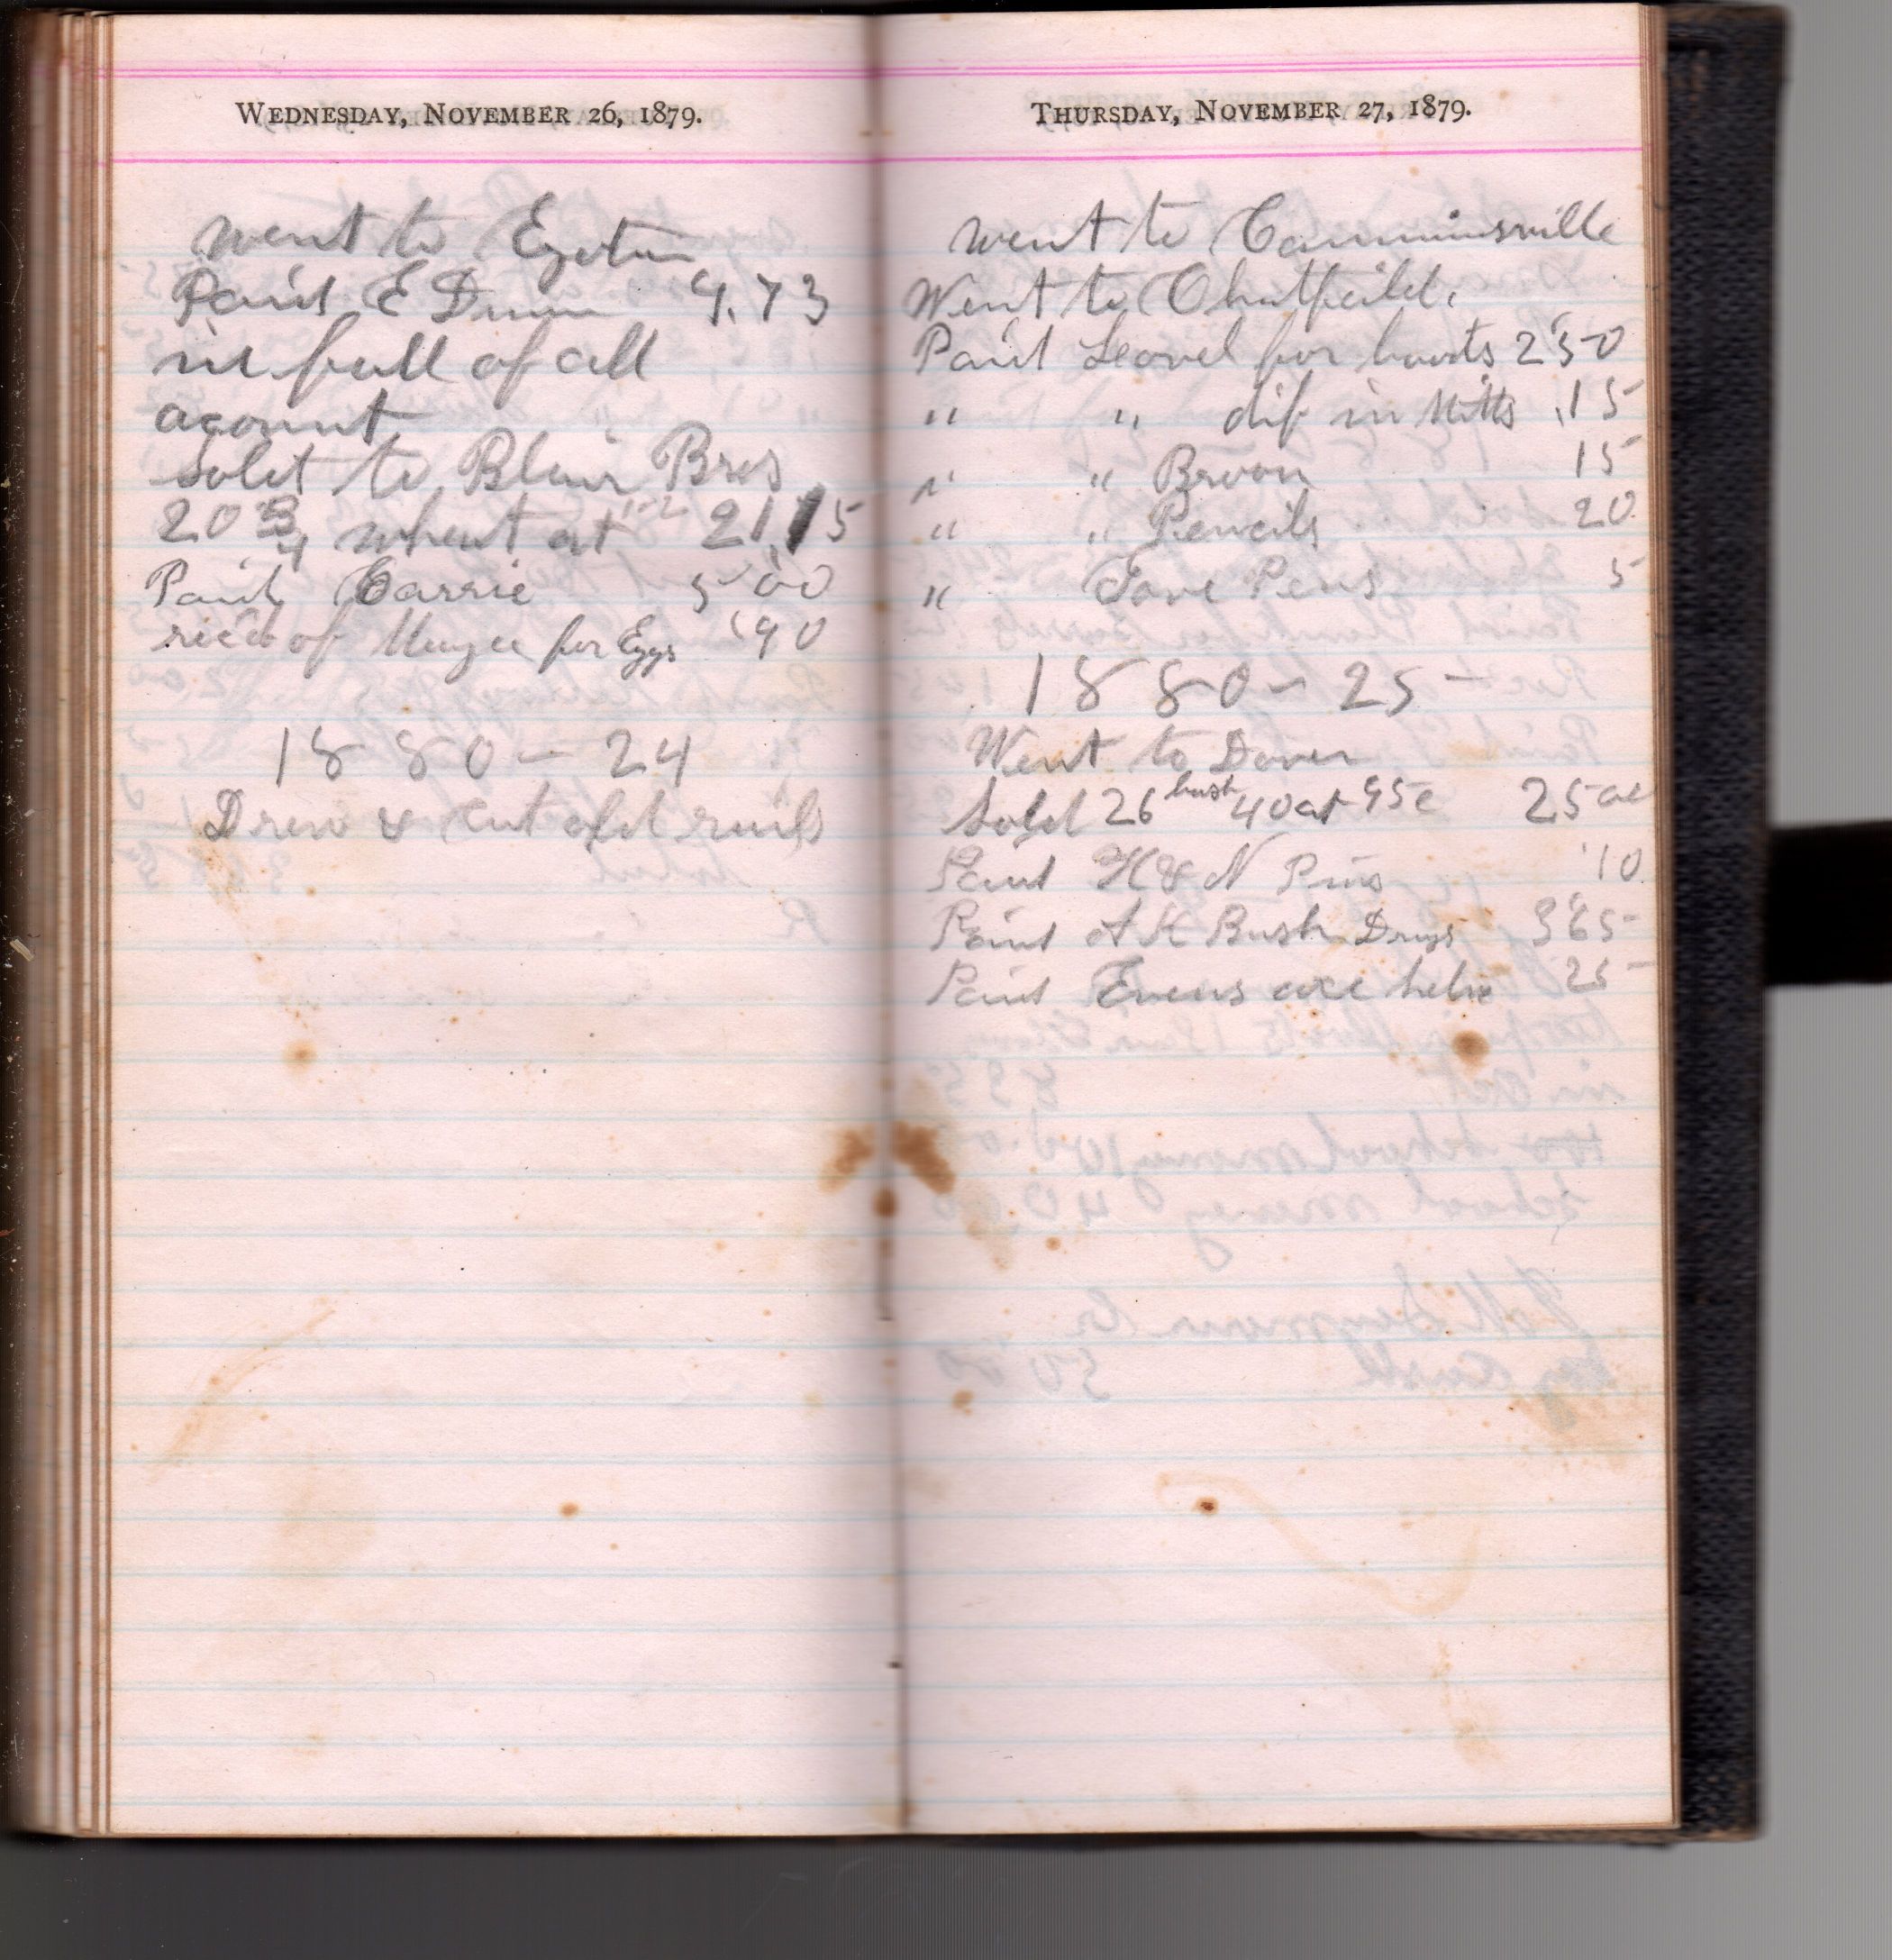 WEDNESDAY, NOVEMBER 26, 1879.
went to Eyota
Paid E Dunn 9.73
in full of all
acount
Sold to Blair Bros
20 3/4 wheat at 21,15
Paid Carrie 5 00
rec'd of for Eggs 90
1880 – 24
Drew & cut old rails
THURSDAY, NOVEMBER 27, 1879.
went to Cumminsville
Went to Chatfeild.
Paid for boots 2 50
" " dif in Mitts .15
" " Broom 15
" " Pencils 20
" Pens 5
1880 – 25
Went to Dover
Sold 26 bush 40 at 95c 25
Paid H & N Pins 10
Paid A K Bush Drugs 3 65
Paid Evens axe helve 25